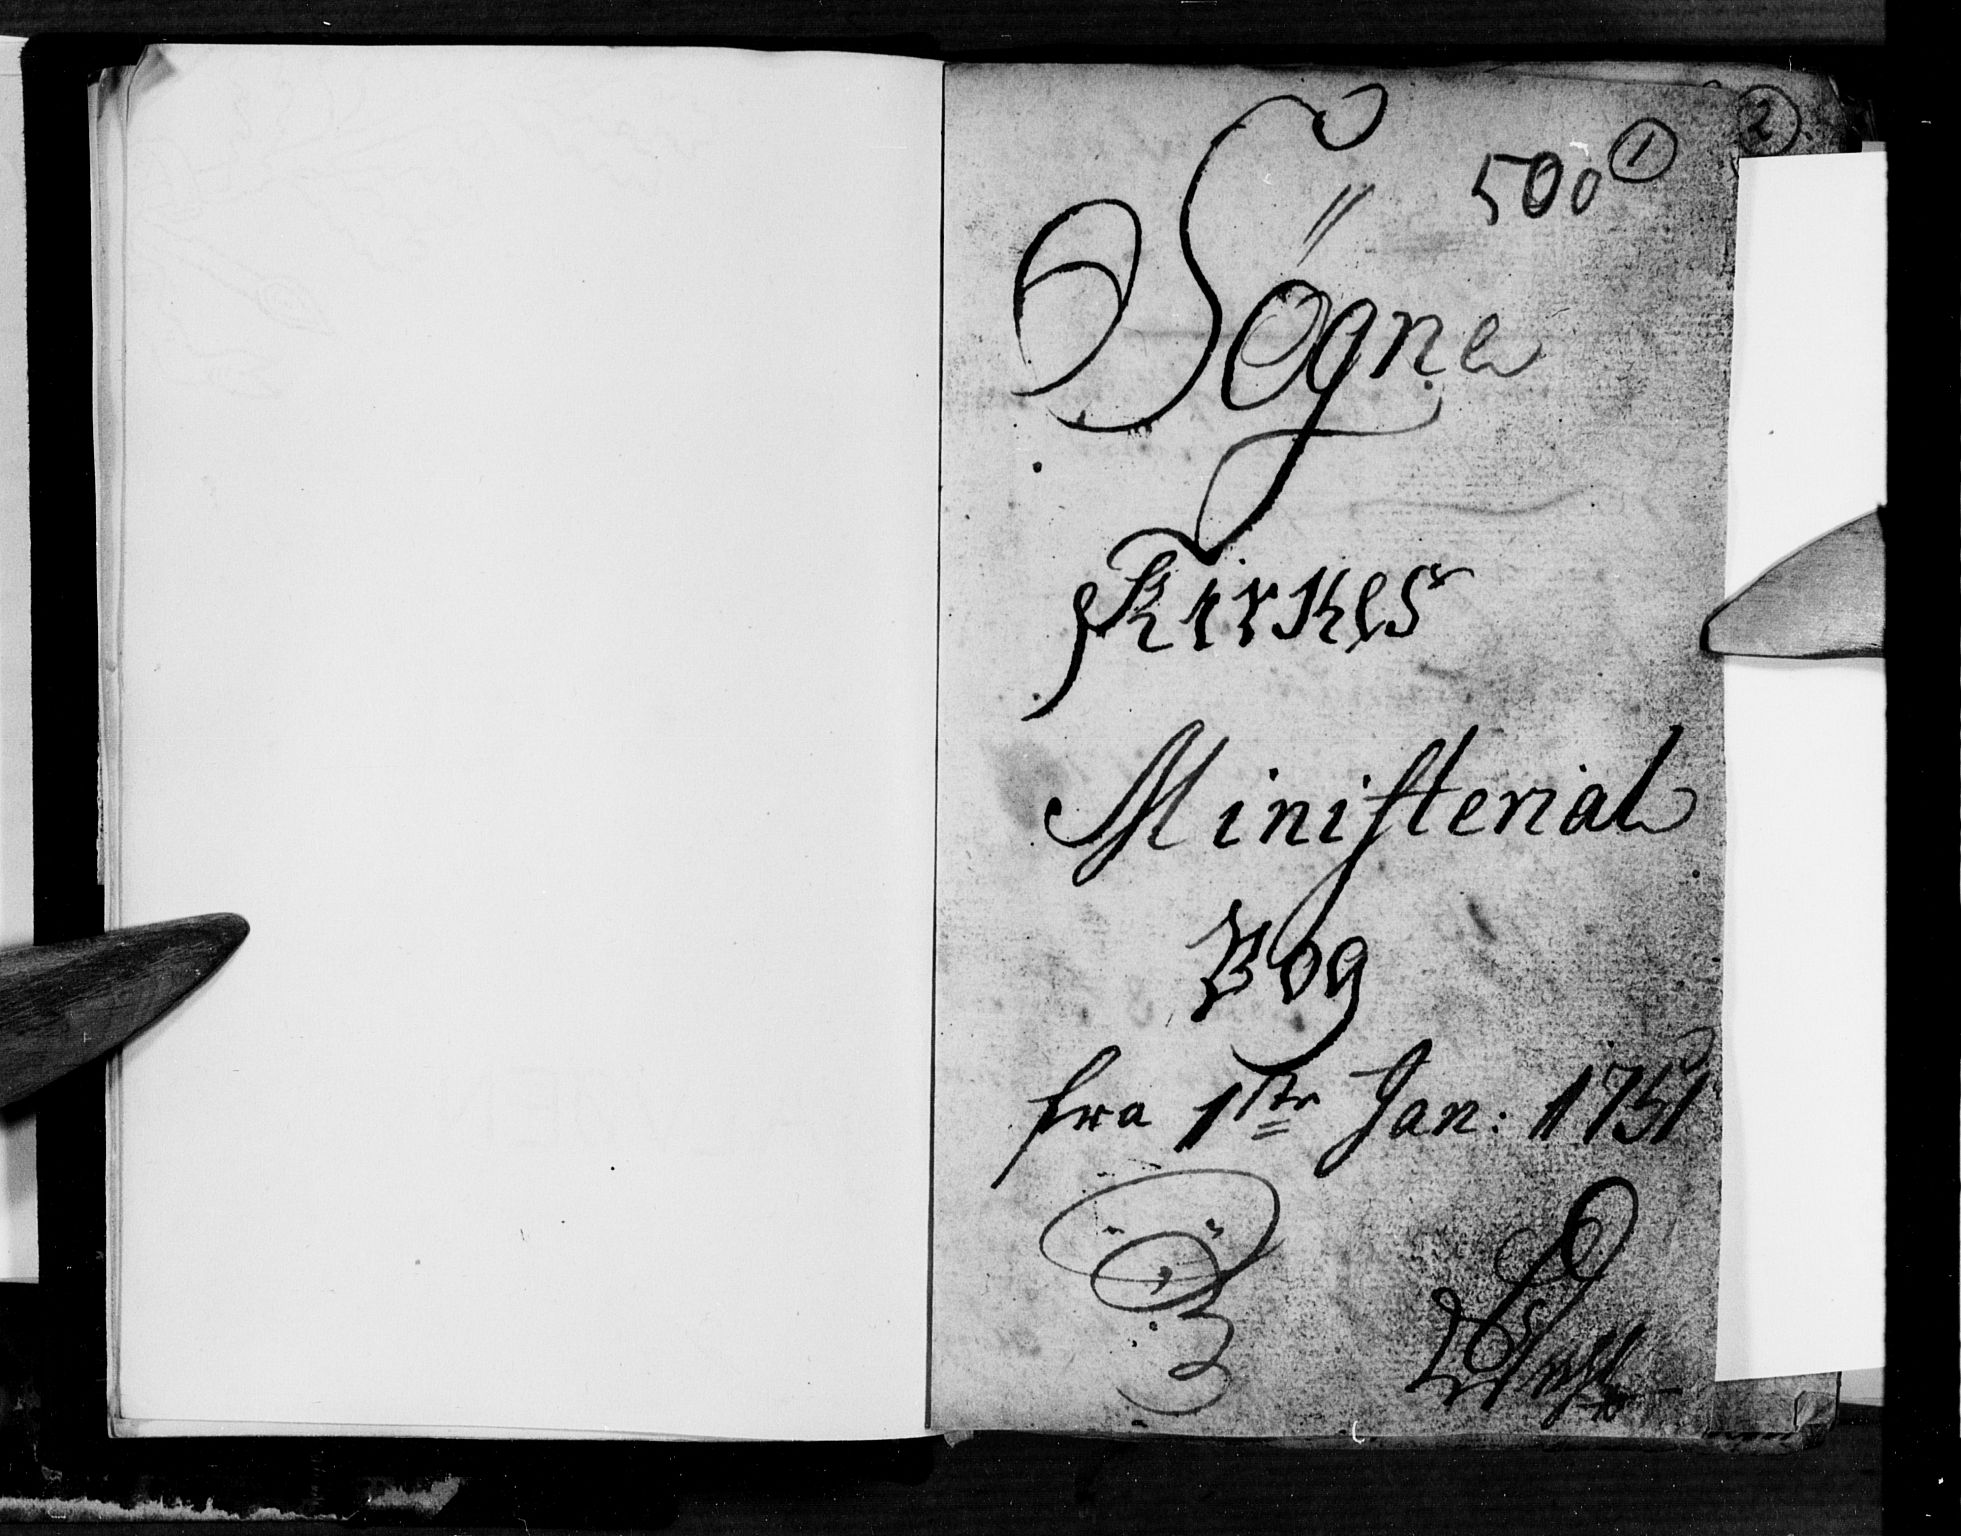 500 1 2
Søgne
Kirkes
Ministerial
Bog
fra 1ste Jan: 1751